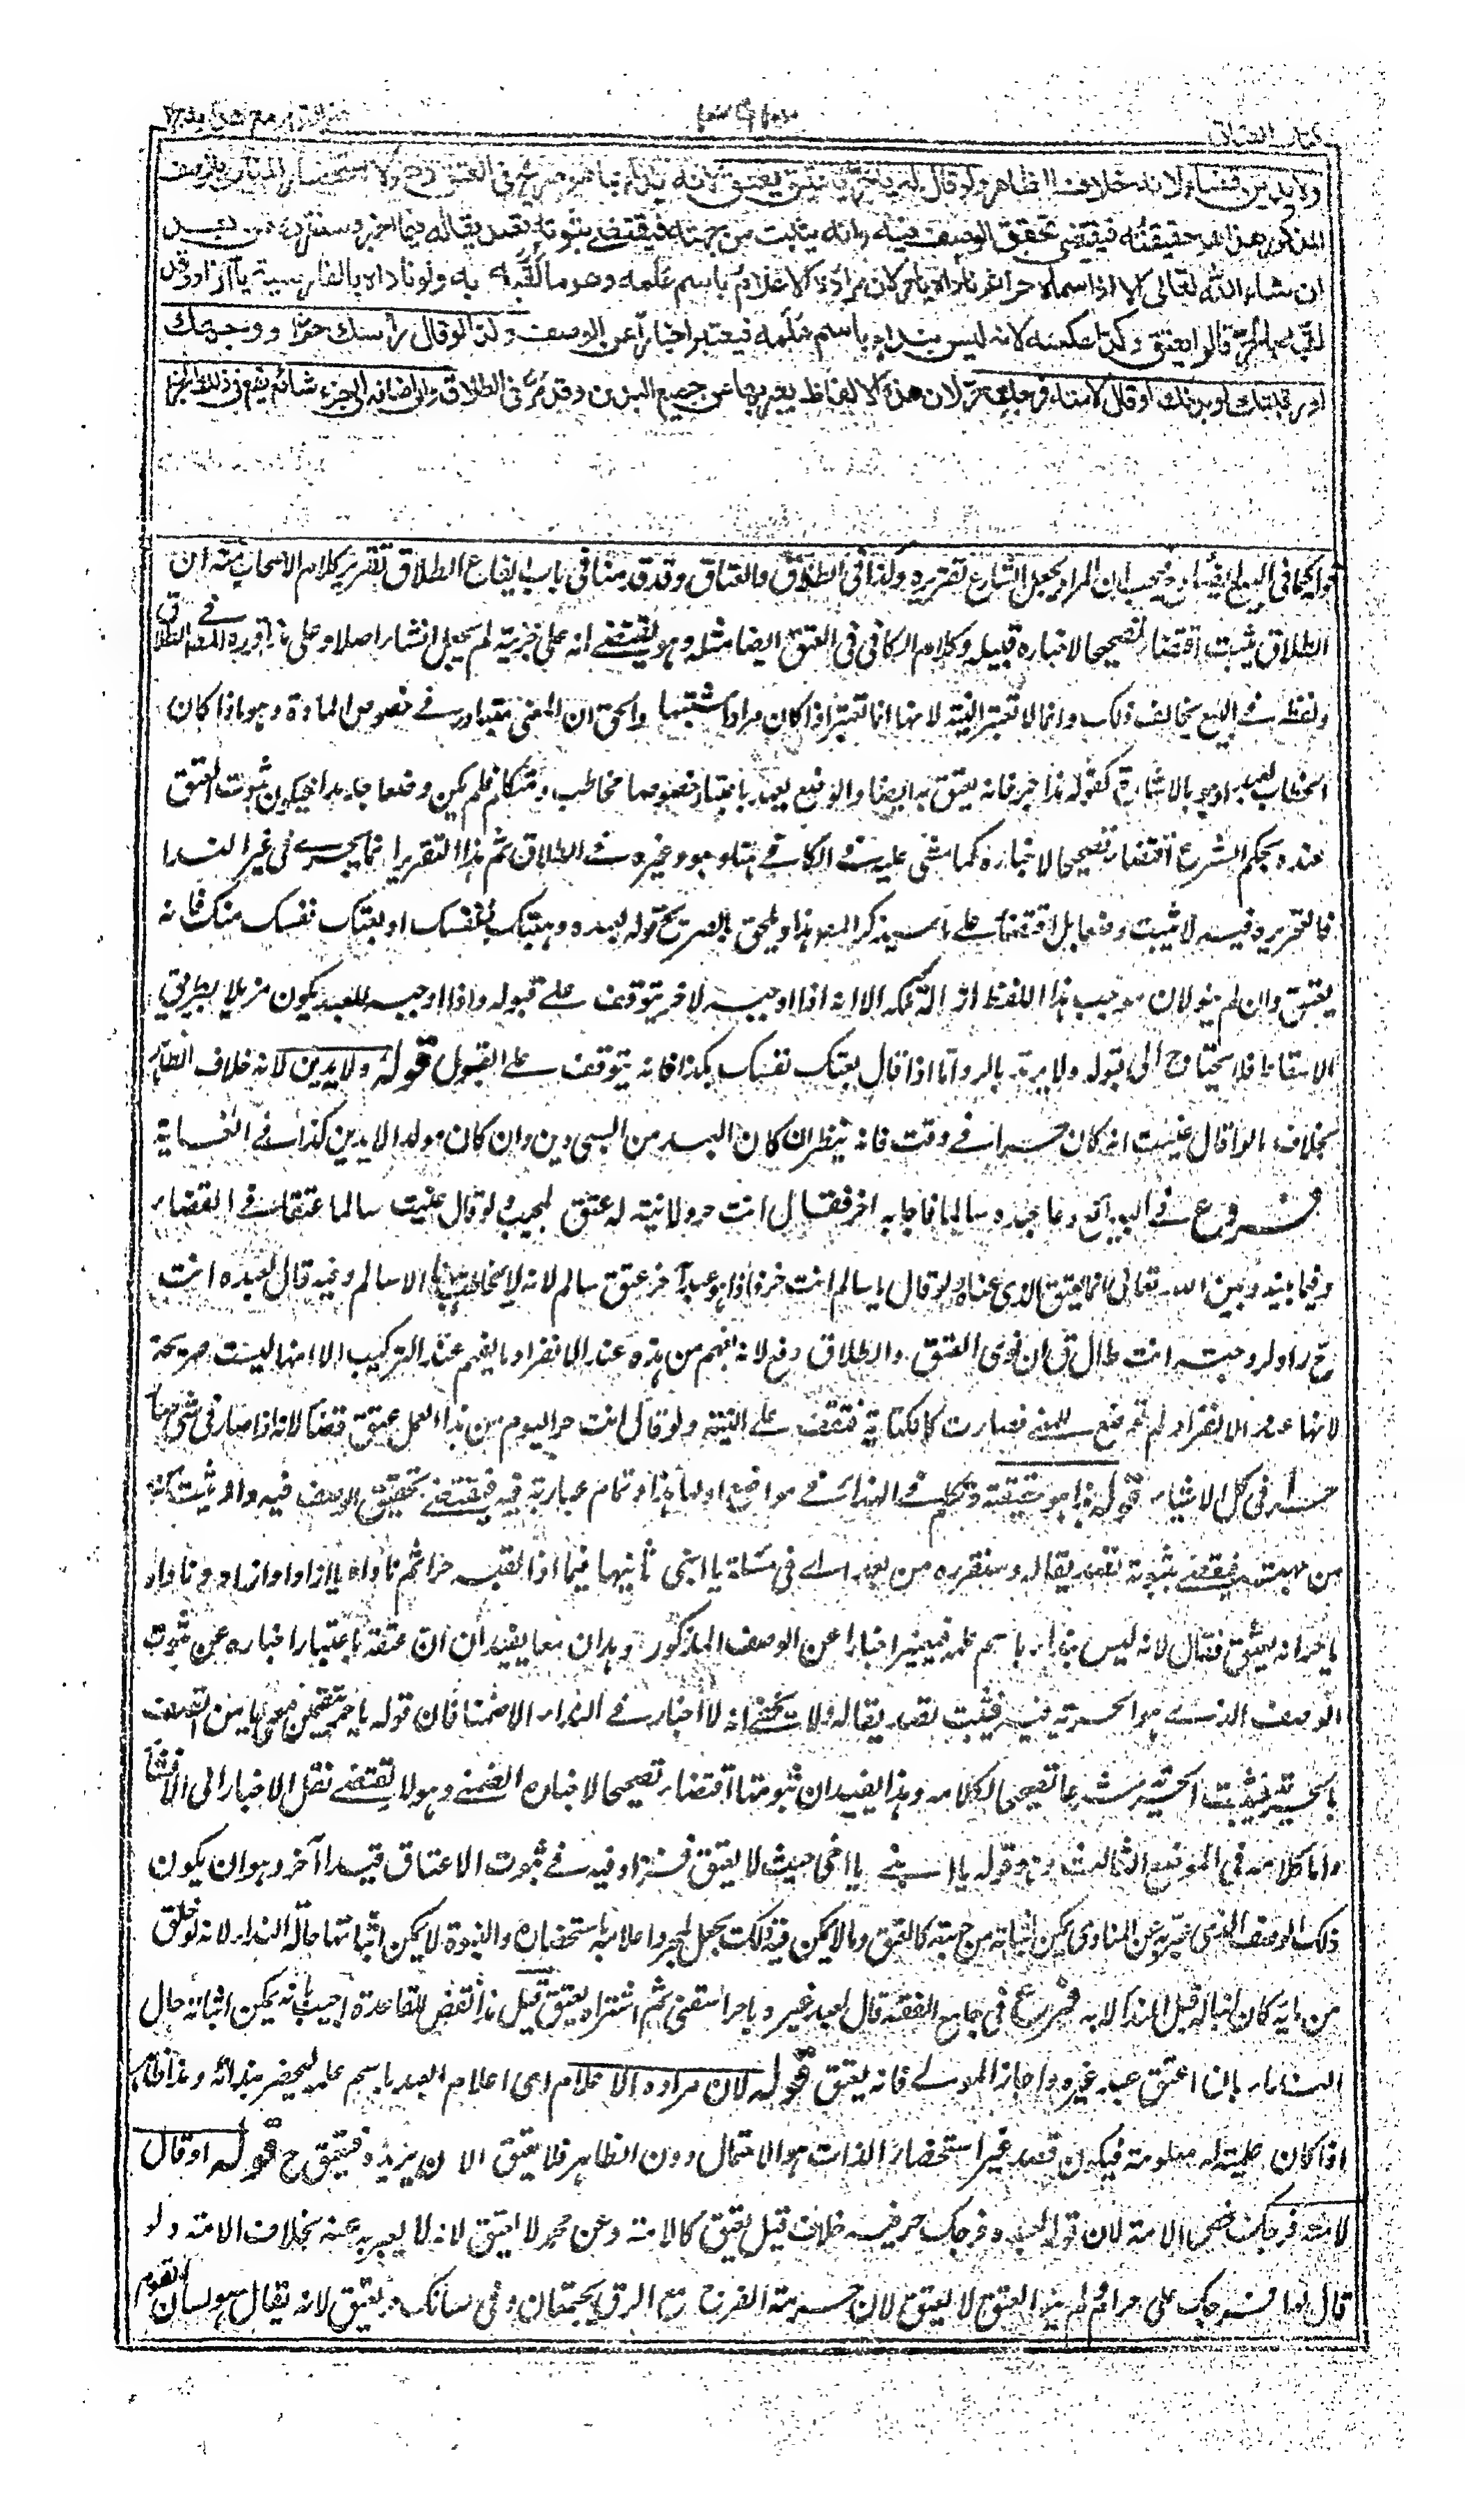 كتاب العتاق
ولا يدين قضاء لانه خلاف الظاهر ولو قال له يا حر يا عتيق يعتق لانه نداء بما هو صريح في العتق وهو لاستحضار المنادى بالوصف
المذكور هذا هو حقيقته فيقتضي تحقق الوصف فيه وانه يثبت من جهته فيقتضي بثبوته تصديقا له فيما اخبر وسنقرره من بعد
ان شاء الله تعالى الا اذا سماه حرا ثم ناداه يا حر لان مراده الاعلام باسم علمه وهو ما لقبه به ولو ناداه بالفارسية يا آزاد وقد
لقبه بالحر قالوا يعتق وكذا عكسه لانه ليس بنداء باسم علمه فيعتبر اخبارا عن الوصف وكذا لو قال راسك حر او وجهك
او رقبتك او بدنك او قال لامته فرجك حر لان هذه الالفاظ يعبر بها عن جميع البدن وقد مر في الطلاق وان اضافه الى جزء شائع يقع في ذلك الجزء
المراد بجعل الشارع تقريره وكذا في الطلاق والعتاق وقد قدمنا في باب ايقاع الطلاق تقرير كلام الاصحاب منه ان
الطلاق يثبت اقتضاء تصحيحا لاخباره قبيله وكلام الكافي في العتق ايضا مثله وهو يقتضي انه على خبريته لم يجعل انشاء اصلا وعلى هذا قرره المصنف في الطلاق
ولفظه في البيع يخالف ذلك وانما لا تعتبر النية لانها انما تعتبر اذا كان مرادا مشتبها والحق ان المعنى متبادر في خصوص المادة وهو اذا كان
الخطاب لعبد او هو بالاشارة كقوله هذا حر فانه يعتق به ايضا والوضع يعتبر باعتبار خصوص مخاطب ومتكلم فلم يكن وضعا جديدا فيكون ثبوت العتق
عنده بحكم الشرع اقتضاء تصحيحا لاخباره كما مشى عليه في الكافي هنا وهو وغيره في الطلاق ثم هذا التقرير انما يجري في غير النداء
فالتحرير فيه لا يثبت وضعا بل اقتضاء على ما سيذكر المص هذا ويلحق بالصريح قوله لعبده وهبتك نفسك او بعتك نفسك منك فانه
يعتق وان لم ينو لان موجب هذا اللفظ ازالة ملكه الا انه اذا اوجبه لاخر يتوقف على قبوله واذا اوجبه للعبد يكون مزيلا بطريق
الاسقاط فلا يحتاج الى قبوله ولا يرتد بالرد واما اذا قال بعتك نفسك بكذا فانه يتوقف على القبول قوله ولا يدين لانه خلاف الظاهر
بخلاف ما لو قال عنيت انه كان حرا في وقت فانه ينظر ان كان العبد من السبي دين وان كان مولدا لا يدين كذا في الغاية
فروع في البدائع دعا عبده سالما فاجابه اخر فقال انت حر ولا نية له عتق المجيب ولو قال عنيت سالما عتقا في القضاء
وفيما بينه وبين الله تعالى انما يعتق الذي عناه ولو قال يا سالم انت حر فاذا هو عبد آخر عتق سالم لانه لا مخاطب هنا الا سالم وفيه قال لعبده انت
ح ر او لزوجته انت طال ق ان نوى العتق والطلاق وقع لانه يفهم من هذه عند الانفراد ما يفهم عند التركيب الا انها ليست صريحة
لانها عند الانفراد لم توضع للمعنى فصارت كالكناية فتقف على النية ولو قال انت حر اليوم من هذا العمل عتق قضاء لانه اذا صار في شيء منها
حرا في كل الاشياء قوله هذا هو حقيقته وتكلم في النداء في مواضع اولها هذا وتمام عبارته فيه فيقتضي تحقق الوصف فيه وانه يثبت
من جهته فيقضى بثبوته تصديقا له وسنقرره من بعد اي في مسئلة يا ابني ثانيها فيما اذا لقبه حرا ثم ناداه يا ازاد او ازاد وناداه
يا حر انه يعتق فقال لانه ليس بنداء باسم علمه فيعتبر اخبارا عن الوصف المذكور وهذان معا يفيدان ان عتقه باعتبار اخباره عن ثبوت
الوصف الذي هو الحرية فيه فيثبت تصديقا له ولا يخفى انه لا اخبار في النداء الا ضمنا فان قوله يا حر يتضمن معنى يا من اتصف
بالحرية فيثبت الحرية شرعا تصحيحا لكلامه وهذا يفيد ان ثبوتها اقتضاء تصحيحا لاخباره الضمني وهو لا يقتضي نقل الاخبار الى الانشاء
واما كلامه في الموضع الثالث وهو قوله يا ابني يا اخي حيث لا يعتق فزاد فيه في ثبوت الاعتاق قيدا آخر وهو ان يكون
ذلك الوصف الذي عبر به عن المنادى يمكن اثباته من جهته كالعتق وما لا يمكن فيه ذلك يجعل لمجرد اعلامه باستحضاره والبنوة لا يمكن اثباتها حالة النداء لانه لو خلق
من مائه كان ابنا له قبل النداء لا به فرع في جامع الفقه قال لعبد غيره يا حر اسقني ثم اشتراه يعتق قيل هذا نقض للقاعدة اجيب بانه يمكن اثباته حال
النداء بان اعتق عبد غيره واجاز المولى فانه يعتق قوله لان مراده الاعلام اي اعلام العبد باسم علمه ليحضر بندائه وهذا ظاهر
اذا كان علميته له معلومة فيكون قصد غير استحضار الذات هو الاحتمال دون الظاهر فلا يعتق الا ان يريده فيعتق ح قوله او قال
لامته فرجك خص الامة لان قوله لعبده فرجك حر فيه خلاف قيل يعتق كالامة وعن محمد لا يعتق لانه لا يعبر به عنه بخلاف الامة ولو
قال لها فرجك علي حرام لم ينو العتق لا يعتق لان حرمة الفرج مع الرق يجتمعان وفي لسانك حر يعتق لانه يقال هو لسان القوم